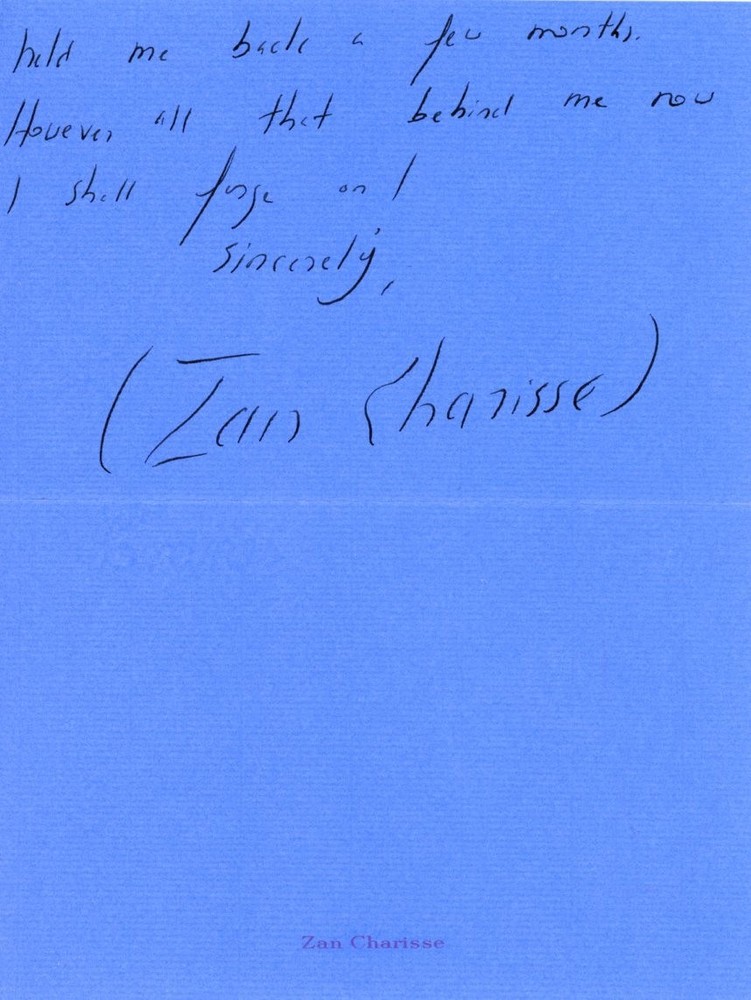 held me back a few months.
However all that behind me now
I shall forge on!
Sincerely,
(Zan Charisse)
Zan Charisse